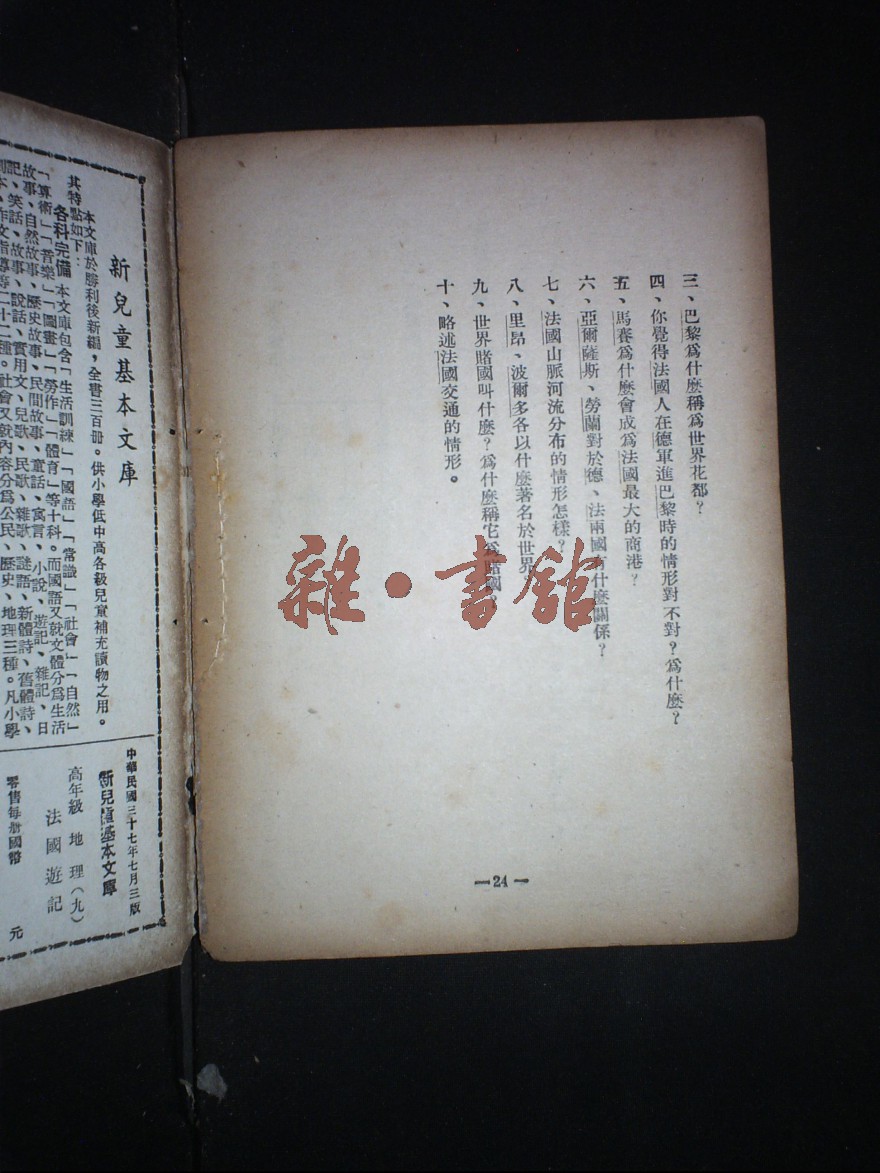 三、巴黎爲什麼稱爲世界花都？
四、你覺得法國人在德軍進巴黎時的情形對不對？爲什麼？
五、馬賽爲什麼會成爲法國最大的商港？
六、亞爾薩斯、勞蘭對於德、法兩國有什麼關係？
七、法國山脈河流分布的情形怎樣？
八、里昂、波爾多各以什麼著名於世界
九、世界賭國叫什麼？爲什麼稱它爲賭國？
十、略述法國交通的情形。
—24—
雜·書館
新兒童基本文庫
本文庫於勝利後新編，全書三百冊。供小學低中高各級兒童補充讀物之用。
其特點如下：
各科完備 本文庫包含「生活訓練」「國語」「常識」「社會」「自然」
「算術」「音樂」「圖畫」「勞作」「體育」等十科。而國語又就文體分爲生活
故事、自然故事、歷史故事、民間故事、童話、寓言、小說、遊記、雜記、日
記、笑話、故事、說話、實用文、兒歌、民歌、雜歌、謎語、新體詩、舊體詩、
劇本、作文指導等二十二種。社會又就內容分爲公民、歷史、地理三種。凡小學
中華民國三十七年七月三版
新兒童基本文庫
高年級 地理（九）
法國遊記
零售每冊國幣 元